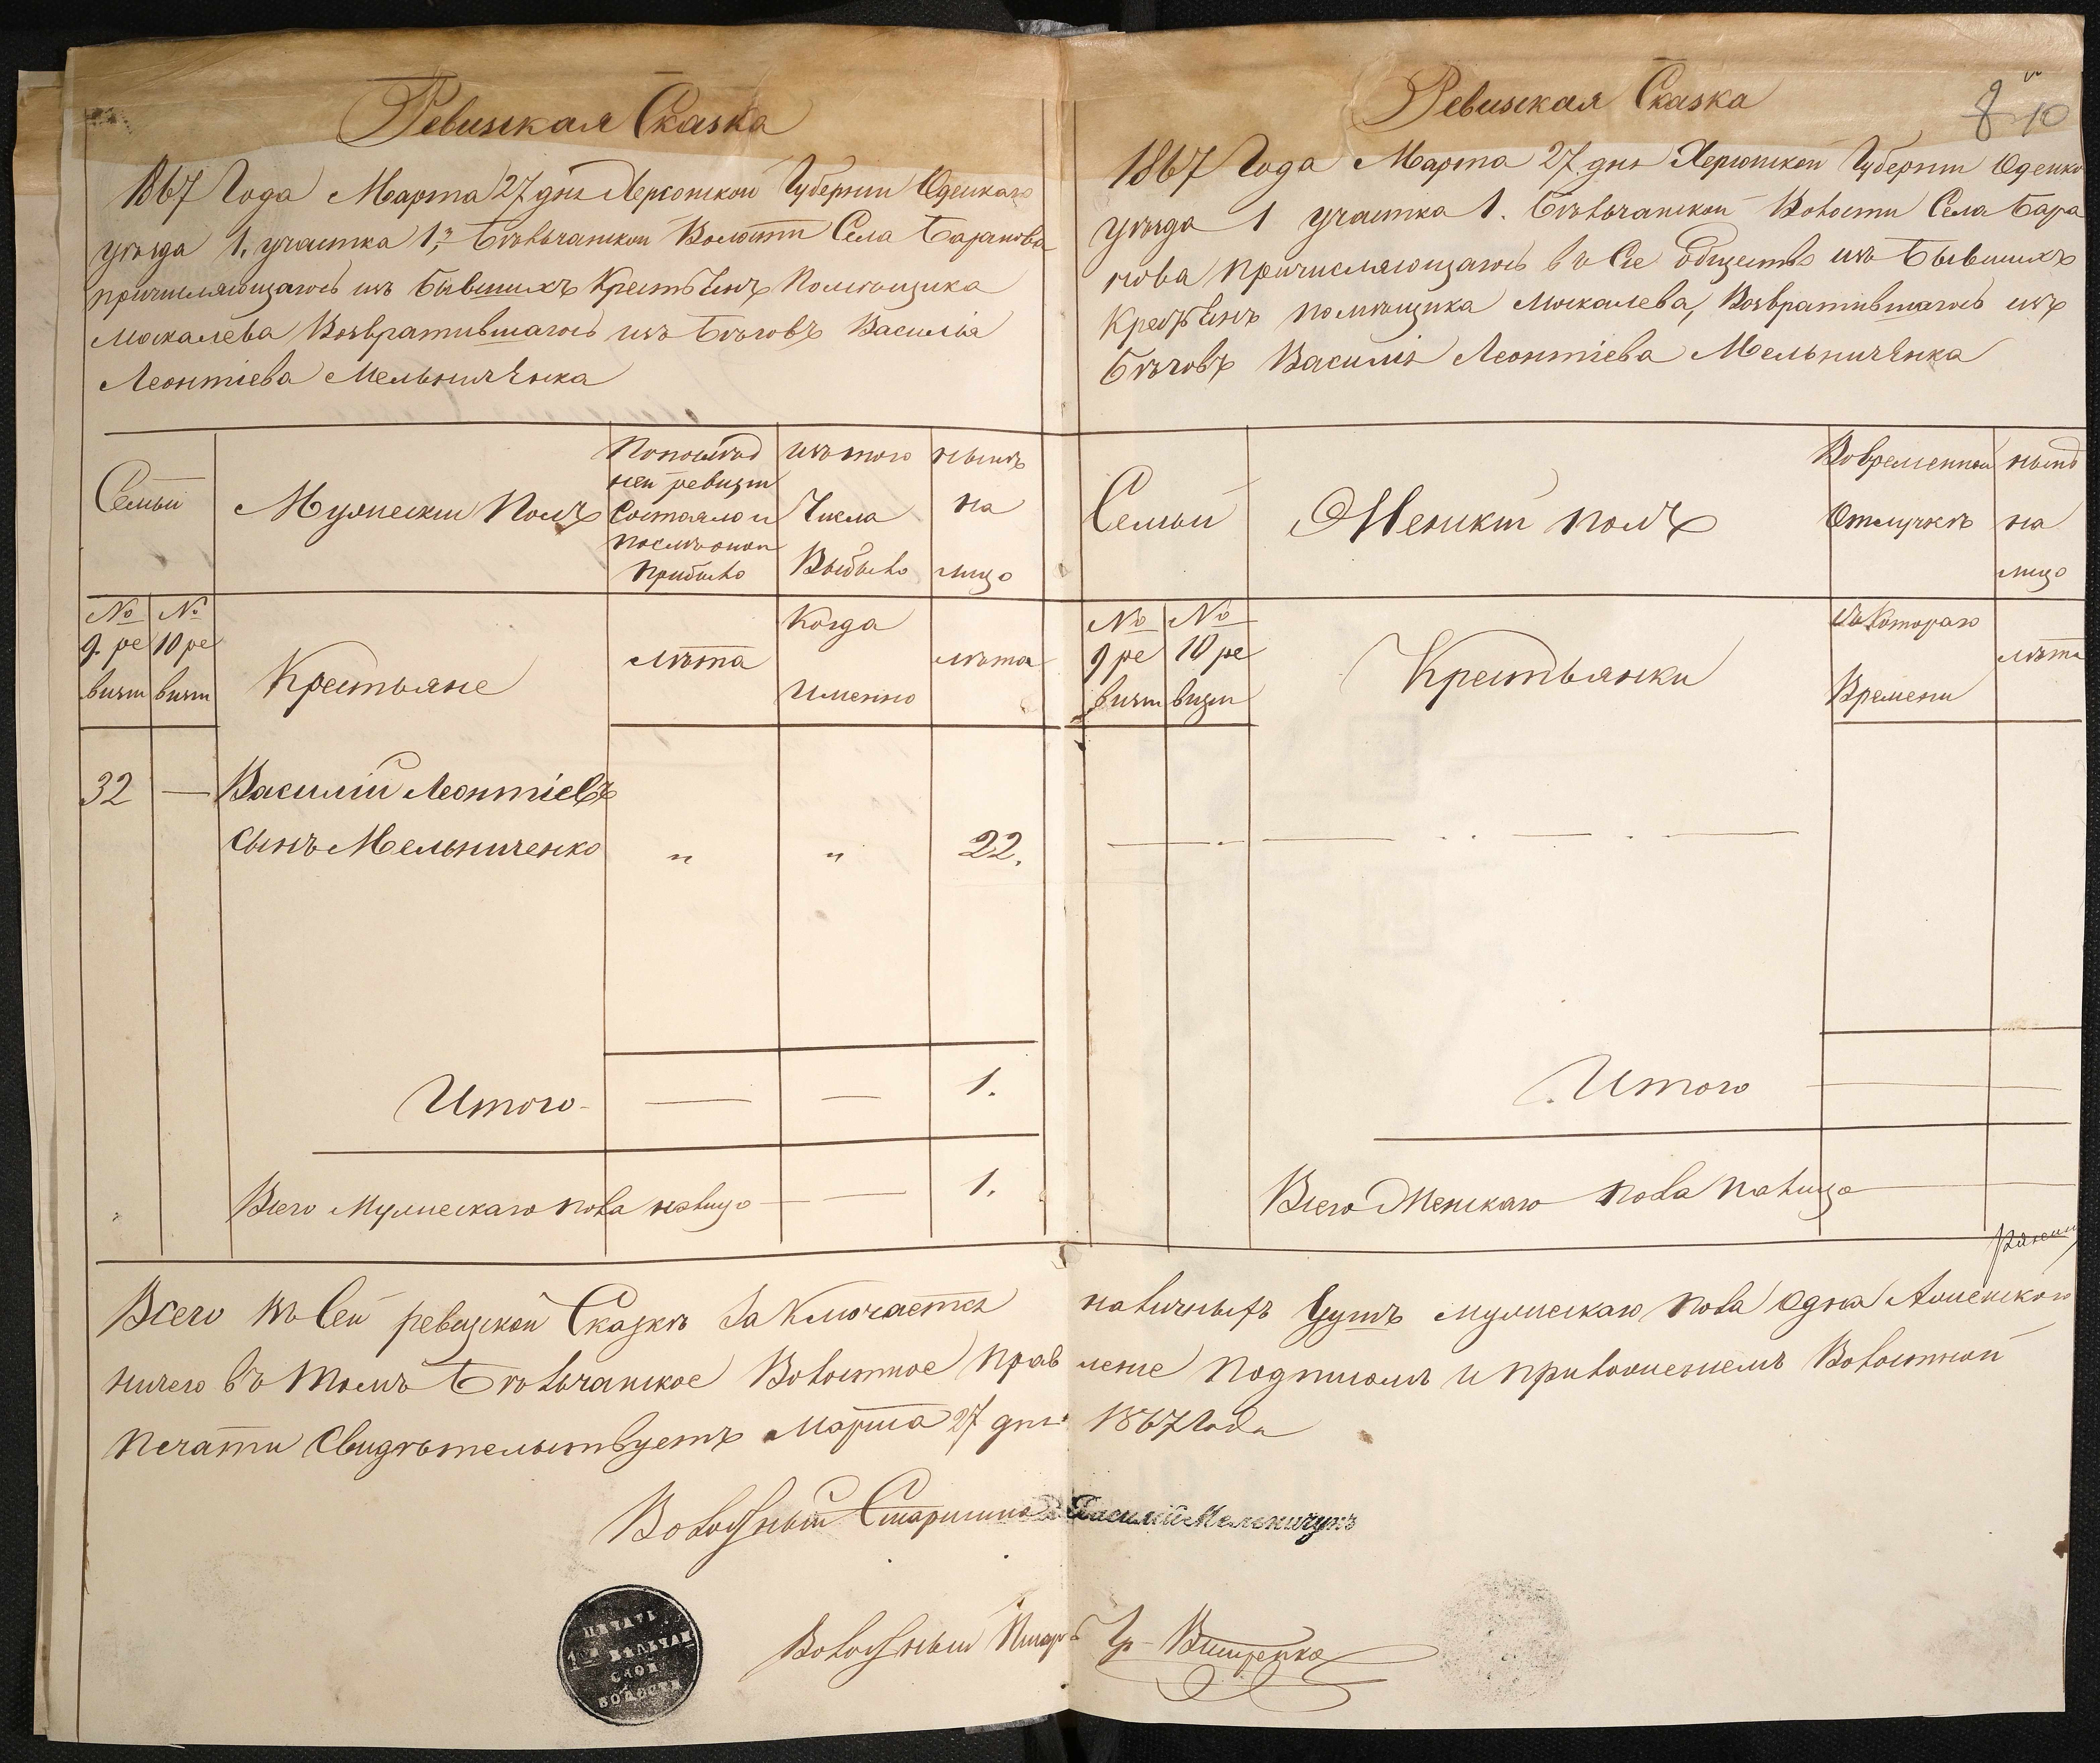 Ревизская Сказка
1867 Года Марта 27 дня Херсонской Губернии Одескаго
уѣзда 1. участка 1й Бѣльчанской Волости Села Баранова
причисляющагось изъ бывшихъ Крестьянъ Помѣщика
Москалева Возвратившагось изъ бѣговъ Василія
Леонтіева Мельниченка
Семьи
Мужескій Полъ
По послѣд
ней ревизіи
Состояло и
послѣ оной
прибыло
изъ того
Числа
Выбыло
нынѣ
на
лицо
№
9. ре
визіи
№
10 ре
визіи
Крестьяне
Лѣта
Когда
Именно
лѣта
32 — Василій Леонтіевъ
сынъ Мельниченко „ „ 22.
Итого — — 1.
Всего Мужескаго пола налицо — — 1.
Ревизская Сказка
8 10
1867 Года Марта 27 дня Херсонской Губерніи Одеско
уѣзда 1 участка 1. Бѣльчанской Волости Села Бара
нова причисляющагось въ Сіе Общество изъ бывшихъ
Крестьянъ помѣщика Москалева, Возвратившагось изъ
бѣговъ Василія Леонтіева Мельниченка
Семьи
Женскій полъ
Во временной
Отлучкѣ
нынѣ
на
лицо
№
9 ре
визіи
№
10 ре
визіи
Крестьянки
Съ Котораго
Времени
лѣта
Итого
Всего Женскаго пола налицо
Всего въ Сей ревизской Сказкѣ Заключается наличныхъ душъ мужескаго пола одна Аженскаго
ничего въ томъ Бѣльчанское Волостное Правленіе подписомъ и приложеніемъ Волостной
печати Свидѣтельствуетъ Марта 27 дня 1867 Года
Волостный Старшина Василій Мельничукъ
Волостный Писарь Гр. Вищенко
ПЕЧАТЬ
1ОЙ БѢЛЬЧАН
СКОЙ
ВОЛОСТИ